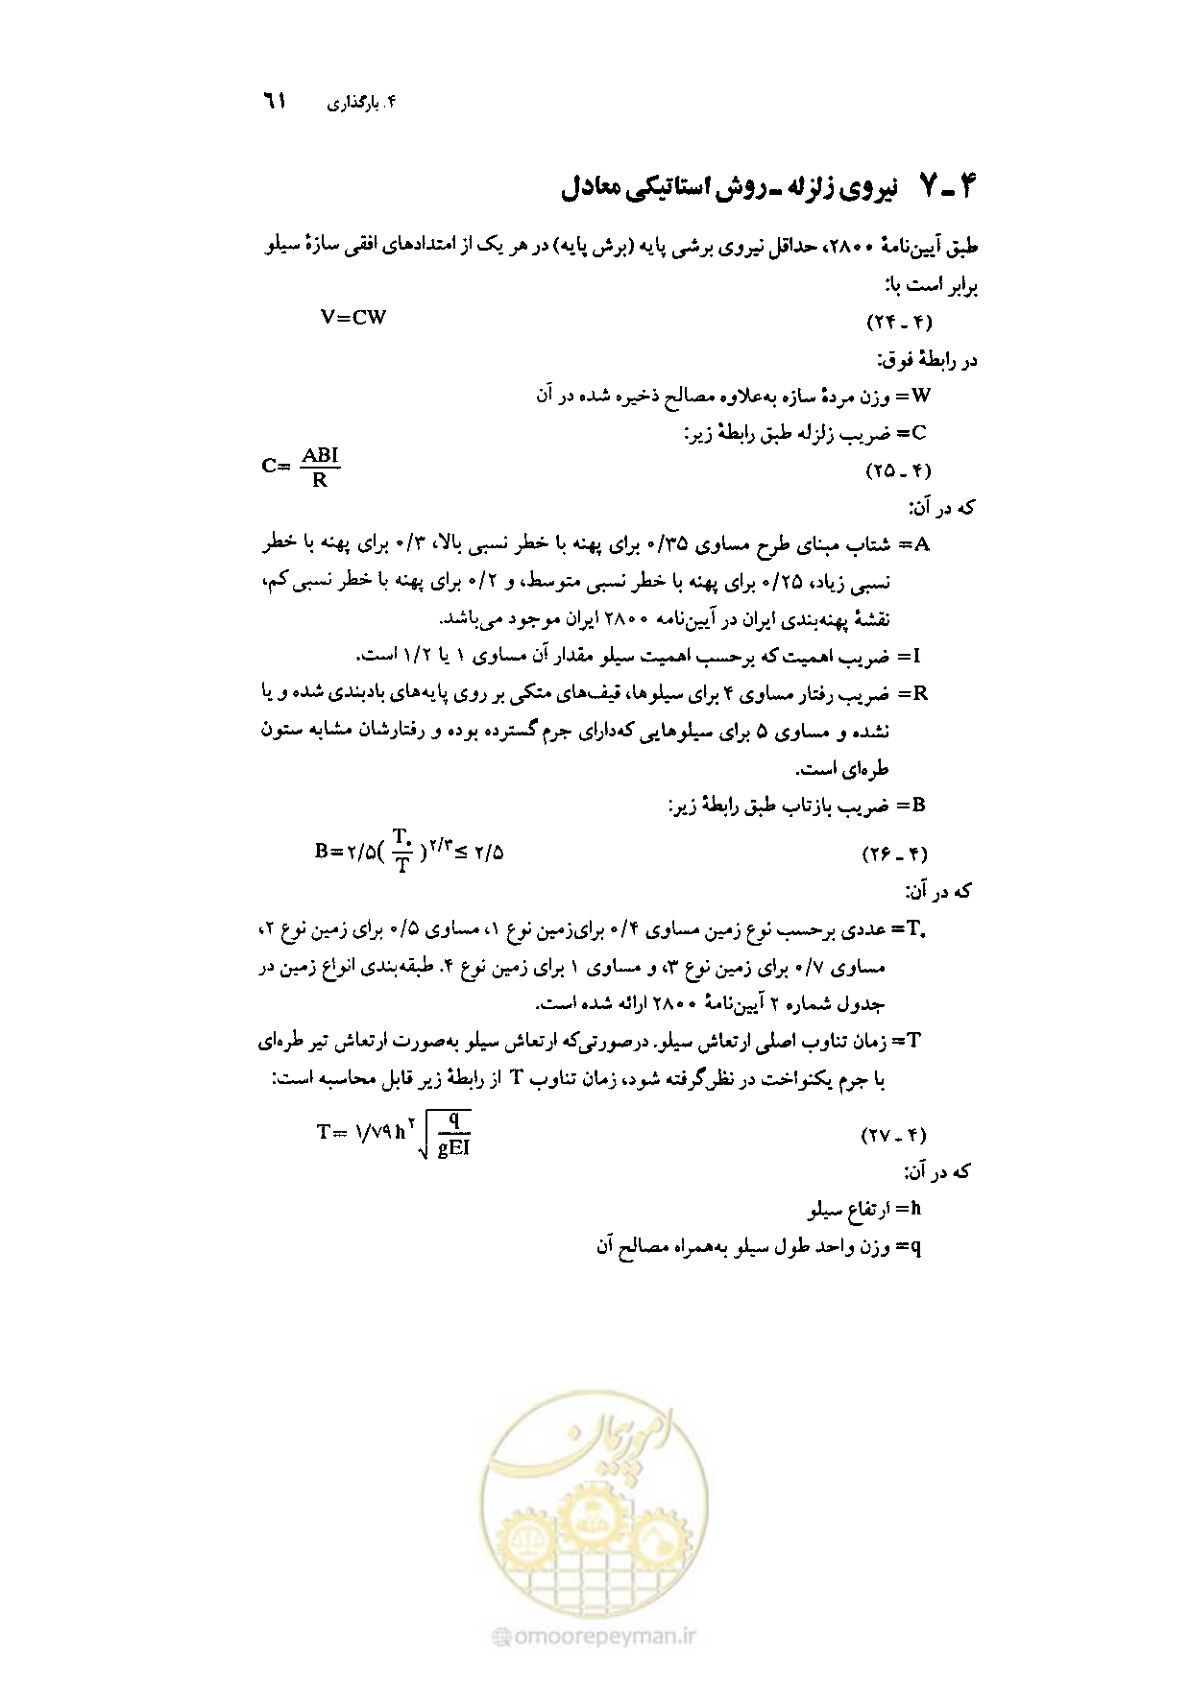 ۴. بارگذاری ۶۱
۴ ـ ۷ نیروی زلزله ـ روش استاتیکی معادل
طبق آیین‌نامهٔ ۲۸۰۰، حداقل نیروی برشی پایه (برش پایه) در هر یک از امتدادهای افقی سازهٔ سیلو
برابر است با:
(۴ ـ ۲۴) V=CW
در رابطهٔ فوق:
W= وزن مردهٔ سازه به‌علاوه مصالح ذخیره شده در آن
C= ضریب زلزله طبق رابطهٔ زیر:
(۴ ـ ۲۵) C= ABI/R
که در آن:
A= شتاب مبنای طرح مساوی ۰/۳۵ برای پهنه با خطر نسبی بالا، ۰/۳ برای پهنه با خطر
نسبی زیاد، ۰/۲۵ برای پهنه با خطر نسبی متوسط، و ۰/۲ برای پهنه با خطر نسبی کم،
نقشهٔ پهنه‌بندی ایران در آیین‌نامه ۲۸۰۰ ایران موجود می‌باشد.
I= ضریب اهمیت که برحسب اهمیت سیلو مقدار آن مساوی ۱ یا ۱/۲ است.
R= ضریب رفتار مساوی ۴ برای سیلوها، قیف‌های متکی بر روی پایه‌های بادبندی شده و یا
نشده و مساوی ۵ برای سیلوهایی که‌دارای جرم گسترده بوده و رفتارشان مشابه ستون
طره‌ای است.
B= ضریب بازتاب طبق رابطهٔ زیر:
(۴ ـ ۲۶) B=۲/۵( T۰/T )^۲/۳ ≤ ۲/۵
که در آن:
T۰= عددی برحسب نوع زمین مساوی ۰/۴ برای‌زمین نوع ۱، مساوی ۰/۵ برای زمین نوع ۲،
مساوی ۰/۷ برای زمین نوع ۳، و مساوی ۱ برای زمین نوع ۴. طبقه‌بندی انواع زمین در
جدول شماره ۲ آیین‌نامهٔ ۲۸۰۰ ارائه شده است.
T= زمان تناوب اصلی ارتعاش سیلو. درصورتی‌که ارتعاش سیلو به‌صورت ارتعاش تیر طره‌ای
با جرم یکنواخت در نظرگرفته شود، زمان تناوب T از رابطهٔ زیر قابل محاسبه است:
(۴ ـ ۲۷) T= ۱/۷۹ h^۲ √(q/gEI)
که در آن:
h= ارتفاع سیلو
q= وزن واحد طول سیلو به‌همراه مصالح آن
امور پیمان
@omoorepeyman.ir